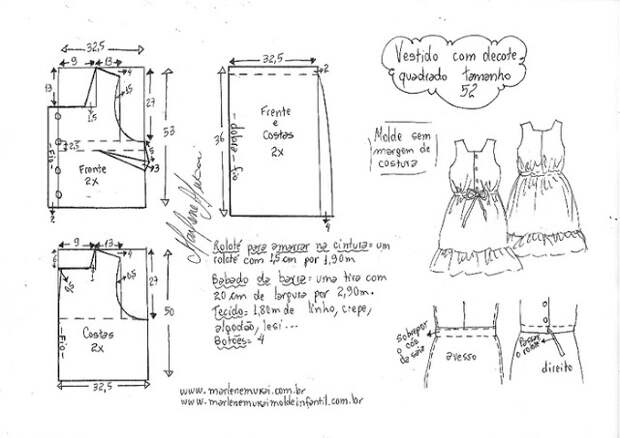 Vestido com decote
quadrado tamanho
52
Molde sem
margem de
costura
32,5
9
13
4
13
1,5
1,5
27
53
2,5
3
-Fio-
Frente
2x
2
32,5
2
36
-dobra-fio-
Frente
e
Costas
2x
4
Marlene Mukai
9
13
4
6
27
50
-Fio-
Costas
2x
32,5
Rolotê para amarrar na cintura = um
rolotê com 1,5 cm por 1,90m
Babado da barra = uma tira com
20 cm de largura por 2,90m.
Tecido: 1,80m de linho, crepe,
algodão, lesi...
Botões = 4
Sobrepor
o cós
da saia
avesso
Passar
o rolotê
direito
www.marlenemukai.com.br
www.marlenemukaimoldeinfantil.com.br